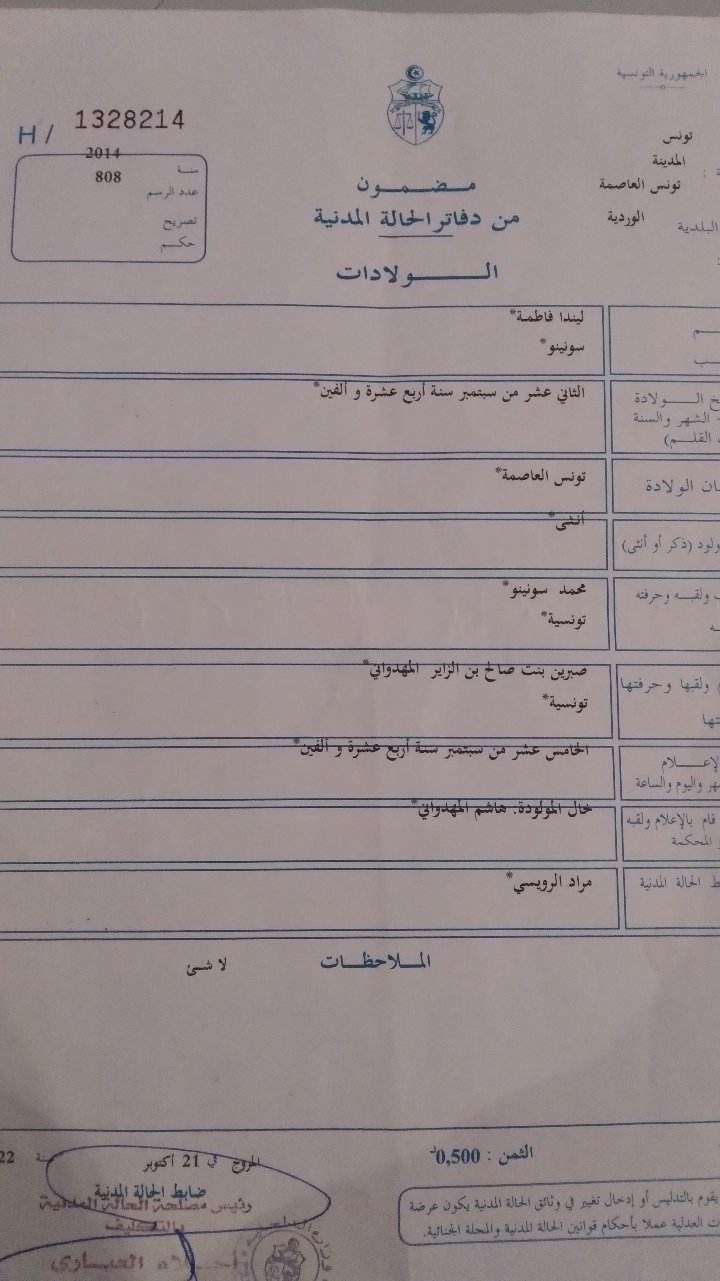 الجمهورية التونسية
H/ 1328214
تونس
المدينة
تونس العاصمة
البلدية الوردية
سنة 2014
عدد الرسم 808
تصريح
حكم
مضمون
من دفاتر الحالة المدنية
الولادات
ليندا فاطمة*
سونينو*
الولادة
الشهر والسنة
القلم)
الثاني عشر من سبتمبر سنة أربع عشرة و ألفين*
الولادة
تونس العاصمة*
(ذكر أو أنثى)
أنثى*
ولقبه وحرفته
محمد سونينو*
تونسية*
ولقبها وحرفتها
صبرين بنت صالح بن الزاير المهدواني*
تونسية*
واليوم والساعة
الخامس عشر من سبتمبر سنة أربع عشرة و ألفين*
قام بالإعلام ولقبه
المحكمة
خال المولودة: هاشم المهدواني*
الحالة المدنية
مراد الرويسي*
الملاحظات
لا شئ
الثمن : 0,500د
المروج في 21 أكتوبر
22
ضابط الحالة المدنية
رئيس مصلحة الحالة المدنية
بالتكليف
يقوم بالتدليس أو إدخال تغيير في وثائق الحالة المدنية يكون عرضة
العدلية عملا بأحكام قوانين الحالة المدنية والمجلة الجنائية.